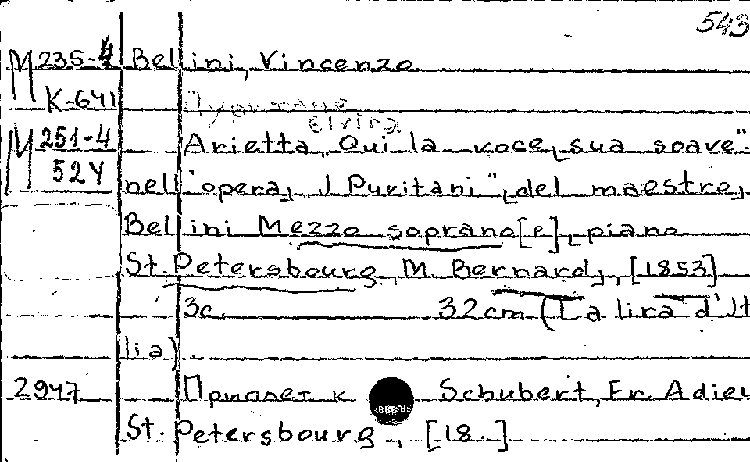 543
M 235-4 Bellini, Vincenzo
K-641 Пуритане
Elvira
M 251-4 Arietta "Qui la voce sua soave"
524 nell'opera "I Puritani", del maestro
Bellini Mezzo soprano [e] piano
St. Petersbourg, M. Bernard, [1853]
3c. 32 cm (La lira d'It
lia)
2947 Приплет к Schubert, Fr. Adieu
St. Petersbourg, [18..]